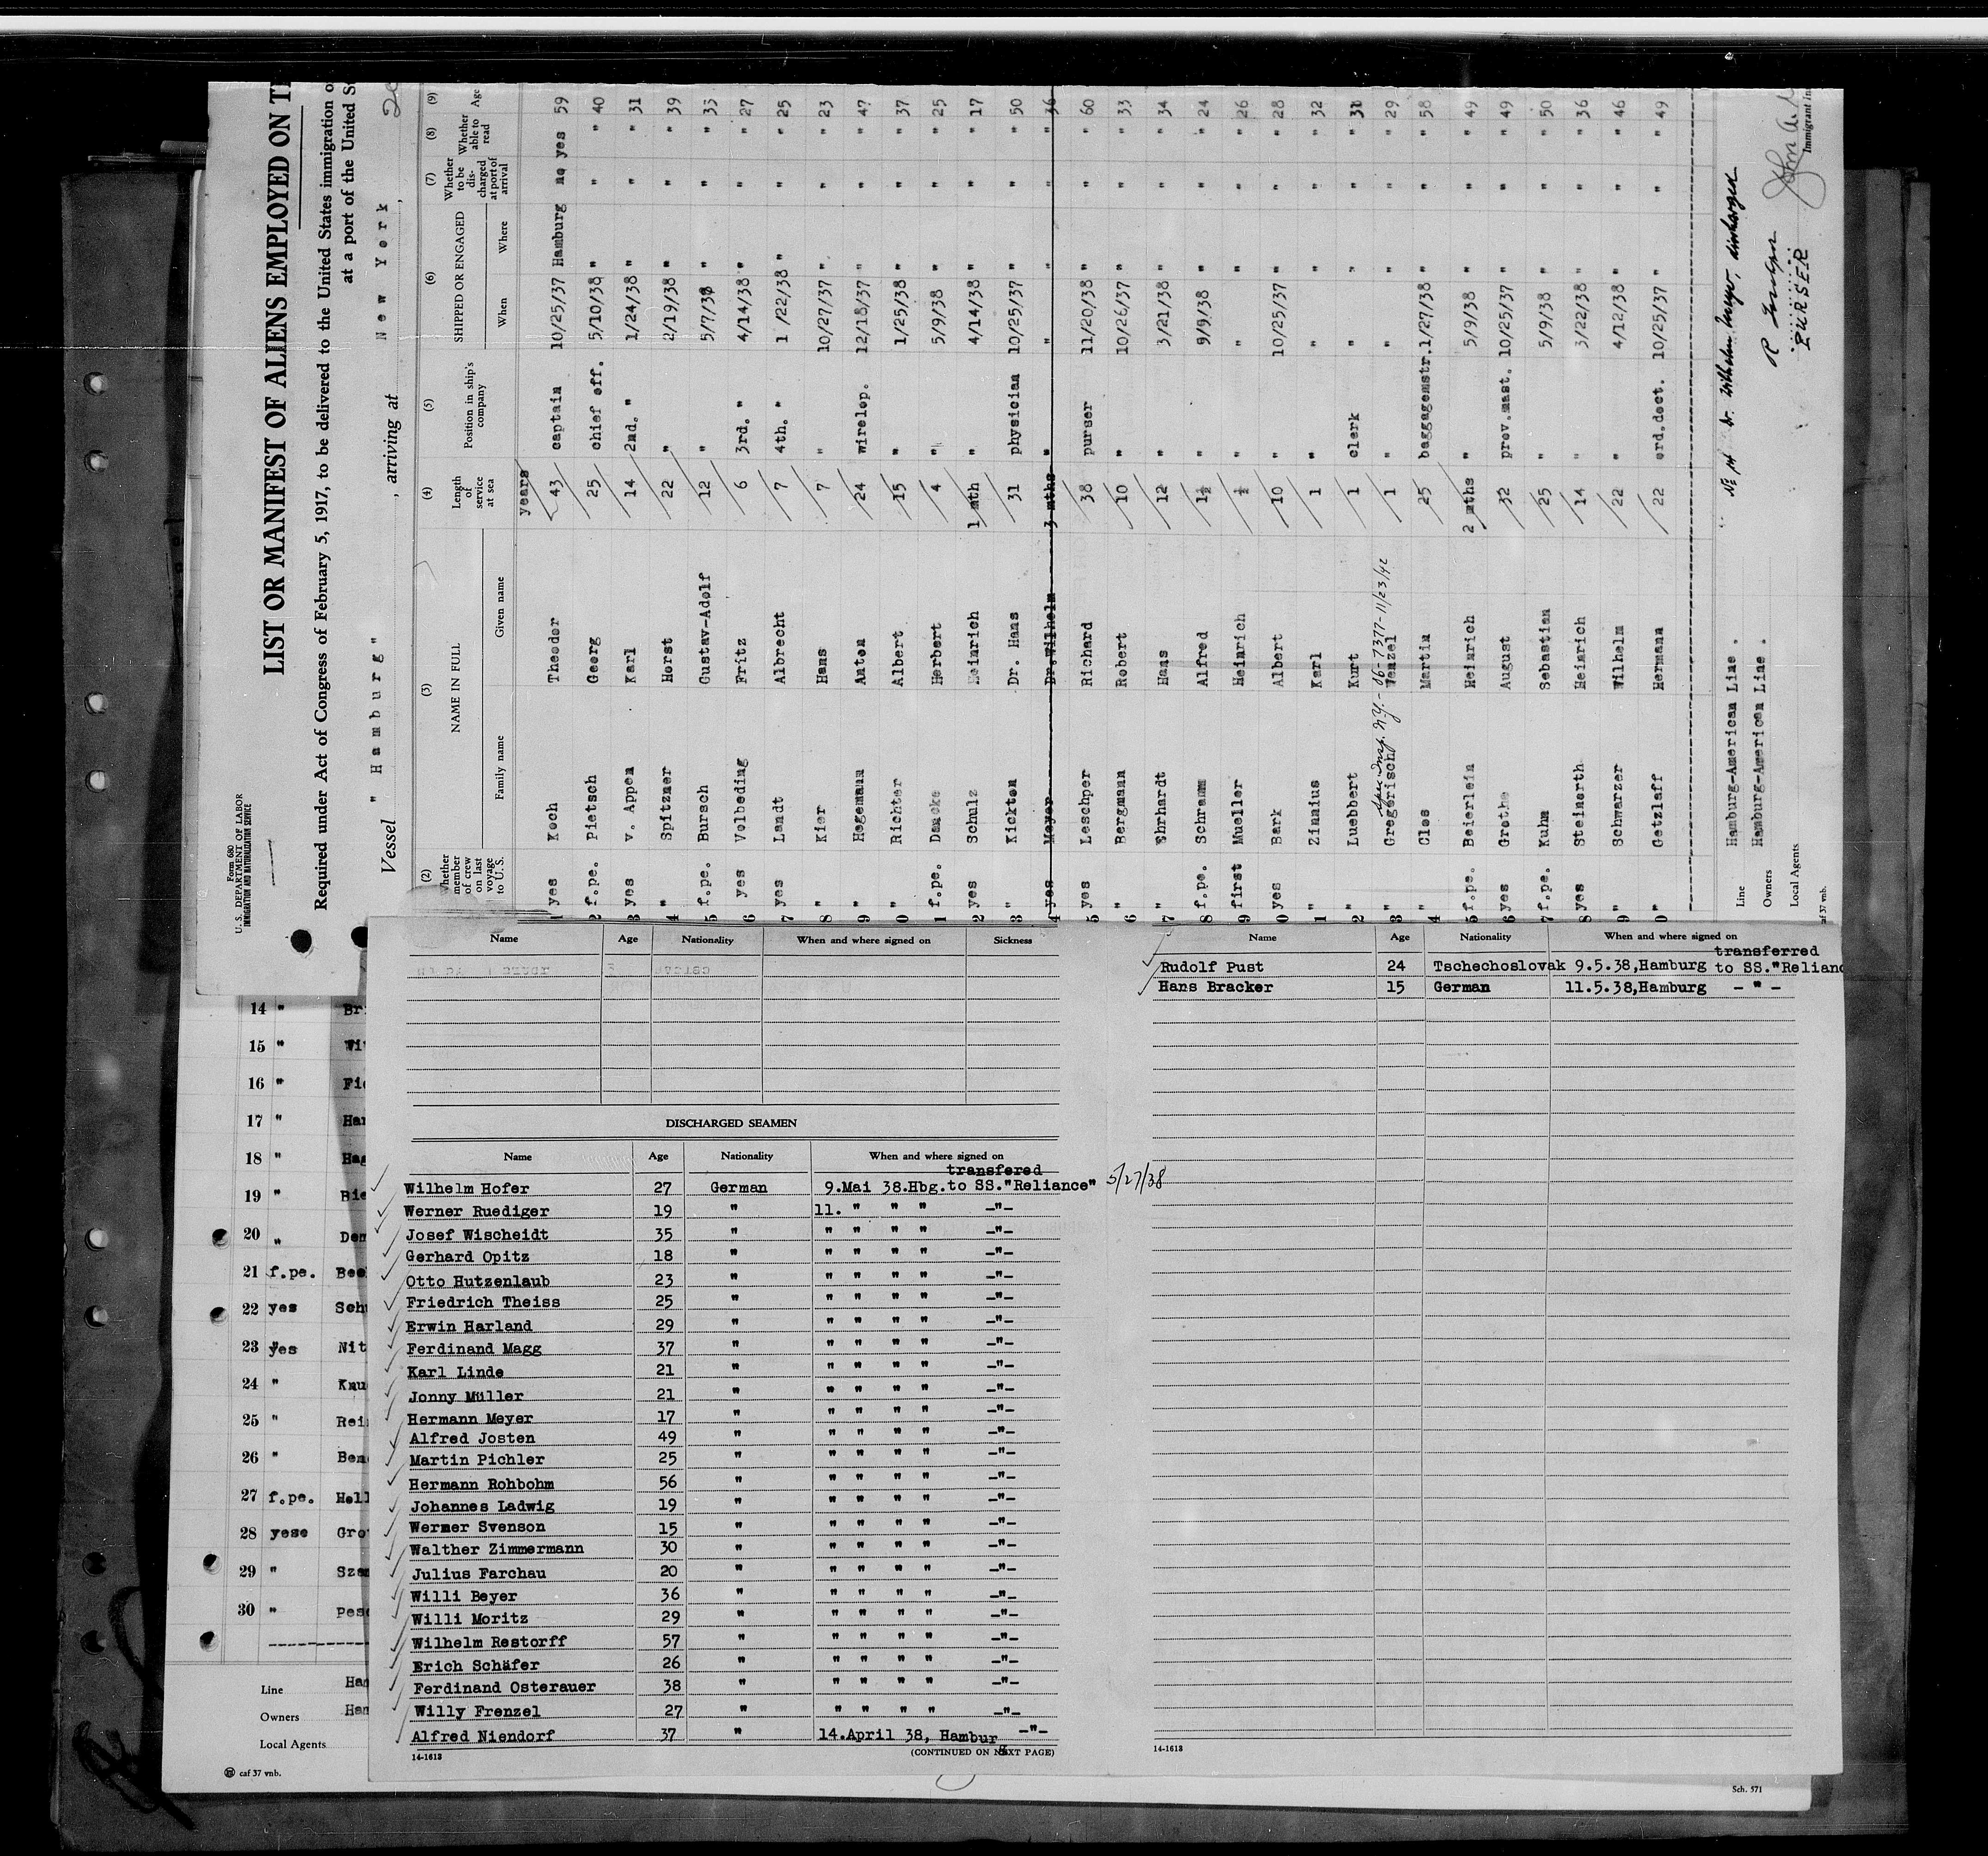 Form 680
U. S. DEPARTMENT OF LABOR
IMMIGRATION AND NATURALIZATION SERVICE
LIST OR MANIFEST OF ALIENS EMPLOYED ON
Required under Act of Congress of February 5, 1917, to be delivered to the United States immigration
at a port of the United
Vessel "Hamburg", arriving at New York,
(2) (3) (4) (5) (6) (7) (8) (9)
Whether member of crew on last voyage to U. S. NAME IN FULL Length of service at sea Position in ship's company SHIPPED OR ENGAGED Whether to be discharged at port of arrival Whether able to read Age
Family name Given name When Where
years
1 yes Koch Theodor 43 captain 10/25/37 Hamburg no yes 59
2 f.pe. Pietsch Georg 25 chief off. 5/10/38 " " " 40
3 yes v. Appen Karl 14 2nd. " 1/24/38 " " " 31
4 " Spitzner Horst 22 " 2/19/38 " " " 39
5 f.pe. Bursch Gustav-Adolf 12 " 5/7/38 " " " 35
6 yes Volbeding Fritz 6 3rd. " 4/14/38 " " " 27
7 yes Landt Albrecht 7 4th. " 1 /22/38 " " " 25
8 " Kier Hans 7 " 10/27/37 " " " 23
9 " Hegemann Anton 24 wirelop. 12/18/37 " " " 47
0 " Richter Albert 15 " 1/25/38 " " " 37
1 f.pe. Dancke Herbert 4 " 5/9/38 " " " 25
2 yes Schulz Heinrich 1 mth " 4/14/38 " " " 17
3 " Kickton Dr. Hans 31 physician 10/25/37 " " " 50
4 yes Meyer Dr.Wilhelm 3 mths " " " " " 36
5 yes Leschper Richard 38 purser 11/20/38 " " " 60
6 " Bergmann Robert 10 " 10/26/37 " " " 33
7 " Ehrhardt Hans 12 " 3/21/38 " " " 34
8 f.pe. Schramm Alfred 1½ " 9/9/38 " " " 24
9 first Mueller Heinrich ½ " " " " " 26
0 yes Bark Albert 10 " 10/25/37 " " " 28
1 " Zinnius Karl 1 " " " " " 32
2 " Luebbert Kurt 1 clerk " " " " 31
Spec Insp. N.Y. - 06-7377-11/23/42
3 " Gregerisch Wenzel 1 " " " " " 29
4 " Clos Martin 25 baggagemstr. 1/27/38 " " " 58
5 f.pe. Beierlein Heinrich 2 mths " 5/9/38 " " " 49
6 yes Grothe August 32 prov.mast. 10/25/37 " " " 49
7 f.pe. Kuhn Sebastian 25 " 5/9/38 " " " 50
8 yes Steinorth Heinrich 14 " 3/22/38 " " " 36
9 " Schwarzer Wilhelm 22 " 4/12/38 " " " 46
0 " Getzlaff Hermann 22 ord.dect. 10/25/37 " " " 49
Dr. Wilhelm Meyer, discharged
Line Hamburg-American Line.
Owners Hamburg-American Line.
Local Agents
PURSER
John A.
Immigrant
af 37 vnb.
14 "
15 "
16 "
17 "
18 "
19 "
20 "
21 f.pe.
22 yes
23 yes
24 "
25 "
26 "
27 f.pe.
28 yese
29 "
30 "
Line
Owners
Local Agents
caf 37 vnb.
Name Age Nationality When and where signed on Sickness
DISCHARGED SEAMEN
Name Age Nationality When and where signed on
transfered
Wilhelm Hofer 27 German 9.Mai 38.Hbg.to SS."Reliance" 5/27/38
Werner Ruediger 19 " 11. " " " -"-
Josef Wischeidt 35 " " " " " -"-
Gerhard Opitz 18 " " " " " -"-
Otto Hutzenlaub 23 " " " " " -"-
Friedrich Theiss 25 " " " " " -"-
Erwin Harland 29 " " " " " -"-
Ferdinand Magg 37 " " " " " -"-
Karl Linde 21 " " " " " -"-
Jonny Müller 21 " " " " " -"-
Hermann Meyer 17 " " " " " -"-
Alfred Josten 49 " " " " " -"-
Martin Pichler 25 " " " " " -"-
Hermann Rohbohm 56 " " " " " -"-
Johannes Ladwig 19 " " " " " -"-
Werner Svenson 15 " " " " " -"-
Walther Zimmermann 30 " " " " " -"-
Julius Farchau 20 " " " " " -"-
Willi Beyer 36 " " " " " -"-
Willi Moritz 29 " " " " " -"-
Wilhelm Restorff 57 " " " " " -"-
Erich Schäfer 26 " " " " " -"-
Ferdinand Osterauer 38 " " " " " -"-
Willy Frenzel 27 " " " " " -"-
Alfred Niendorf 37 " 14.April 38, Hamburg -"-
14-1613 (CONTINUED ON NEXT PAGE)
Name Age Nationality When and where signed on
transferred
Rudolf Pust 24 Tschechoslovak 9.5.38,Hamburg to SS."Relianc
Hans Bracker 15 German 11.5.38,Hamburg - " -
14-1613
Sch. 571